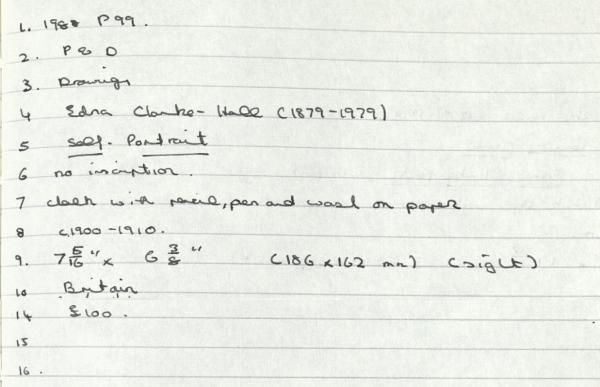 1. 1988 P99.
2. P & D
3. Drawings
4 Edna Clarke-Hall (1879-1979)
5 Self-Portrait
6 no inscription.
7 with pencil, pen and wash on paper
8 c.1900-1910.
9. 7 5/16" x 6 3/8" (186 x 162 mm) (sight)
10 Britain
14 £100.
15
16.